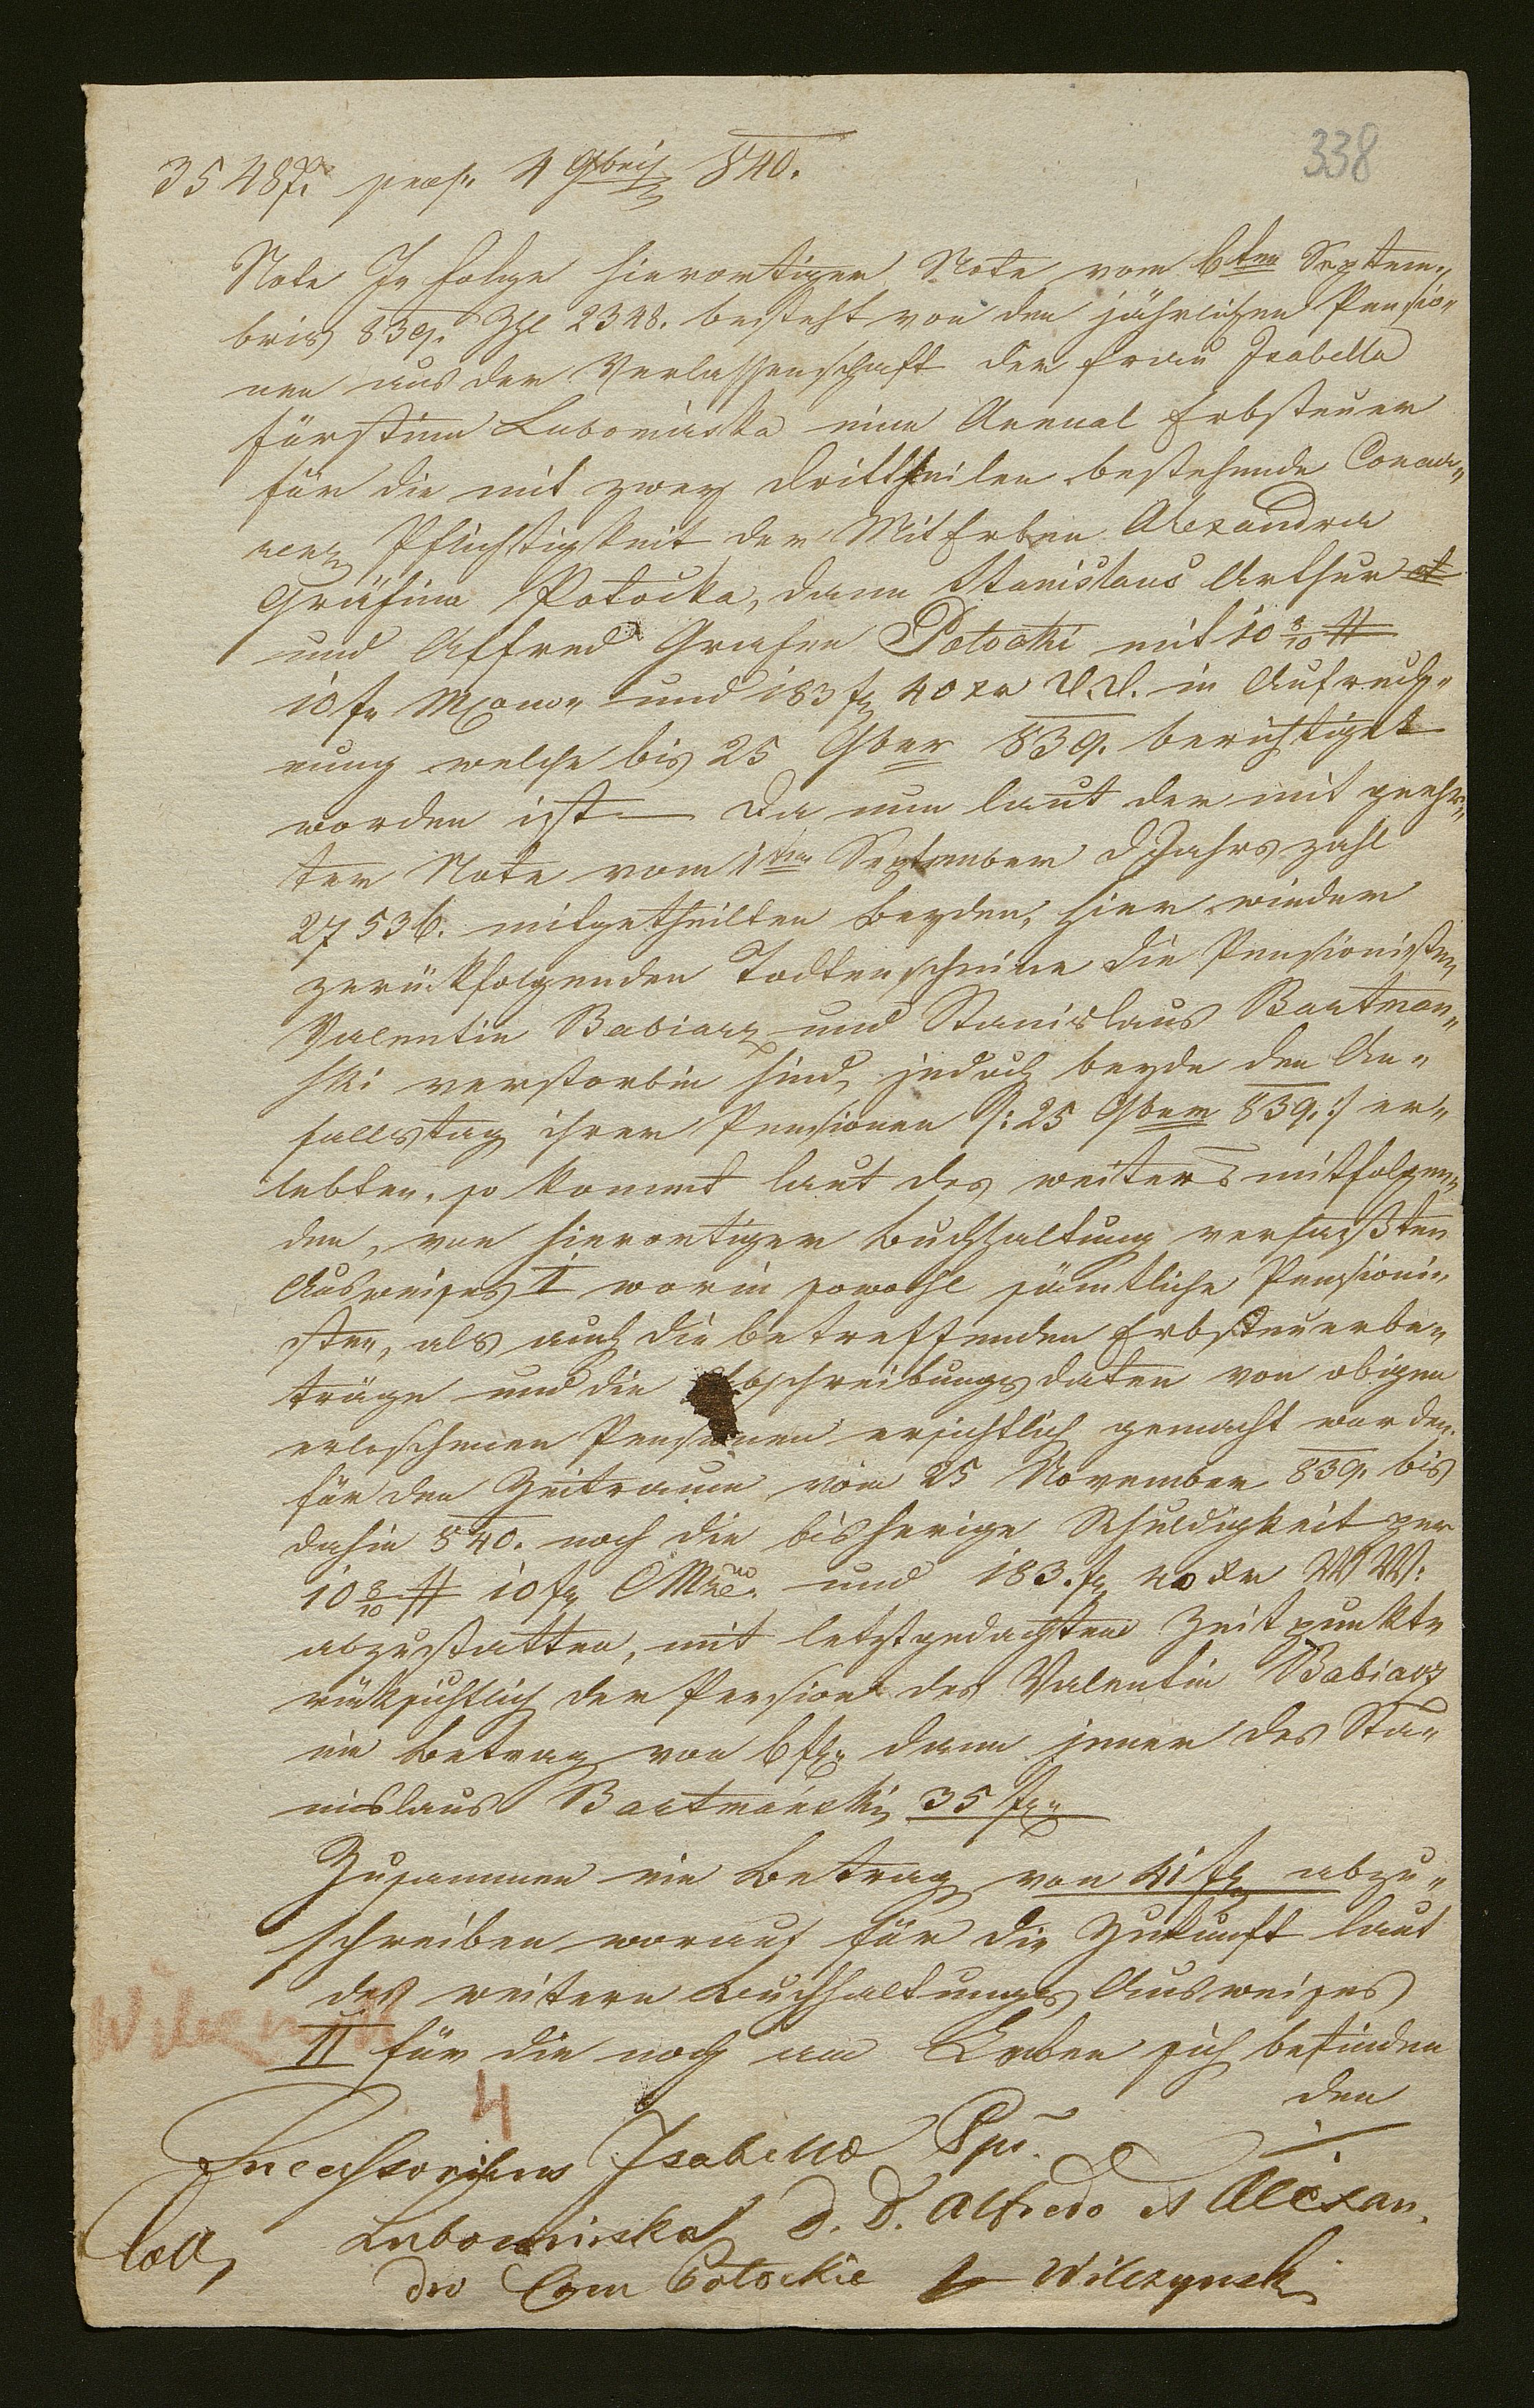 338
35487. praes. 4 9bris 840.
Note In Folge hierortiger Note vom 6ten Septem„
bris 839. Zhl 2348. besteht von den jährlichen Pensio„
nen aus der Verlassenschaft der Frau Isabella
Fürstinn Lubomirska eine Aerual Erbsteuer
für die mit zwey Drittheilen bestehende
Pflichtigkeit der MitErben Alexandra
Gräfinn Potocka, dann Stanislaus Arthur et
und Alfred Grafen Potocki mit 10 8/10 #
10 f. und 183 f 40 xr in Aufrech„
nung welche bis 25 9ber 839. berichtiget
worden ist — Da nun laut der mit geehr„
ter Note vom 1ten September d Jahrs Zahl
27536. mitgetheilten beyden, hier wieder
zurückfolgenden Todtenscheine die Pensionisten
Valentin Babiarz und Stanislaus Bartman„
ski verstorben sind, jedoch beyde den An„
fallstag ihrer Pensionen /: 25 9ber 839. :/ er„
lebten, so kommt laut des weiters mitfolgen„
den, von hierortiger Buchhaltung verfaßten
Ausweises I worin sowohl sämtliche Pensioni„
sten, als auch die betreffenden Erbsteuerbe„
träge und die Abschreibungsdaten von obigen
erloschenen Pensionen ersichtlich gemacht worden.
für den Zeitraum vom 25 November 839. bis
dahin 840. noch die bisherige Schuldigkeit per
10 8/10 # 10 f CMze. und 183. f 40 xr WW:
abzustatten, mit letztgedachtem Zeitpunkte
rücksichtlich der Pension des Valentin Babiarz
ein Betrag von 6 f. dann jener des Sta„
nislaus Bartmański 35 f.
Zusammen ein Betrag von 41 f abzu„
schreiben worauf für die Zukunft laut
des weitern Buchhaltungs Ausweises
II für die noch am Leben sich befinden
den
4
Successoribus Isabellae Pps.
Lubomirska D. D. Alfredo et Alexan.
dro Com Potockie Wilczynski